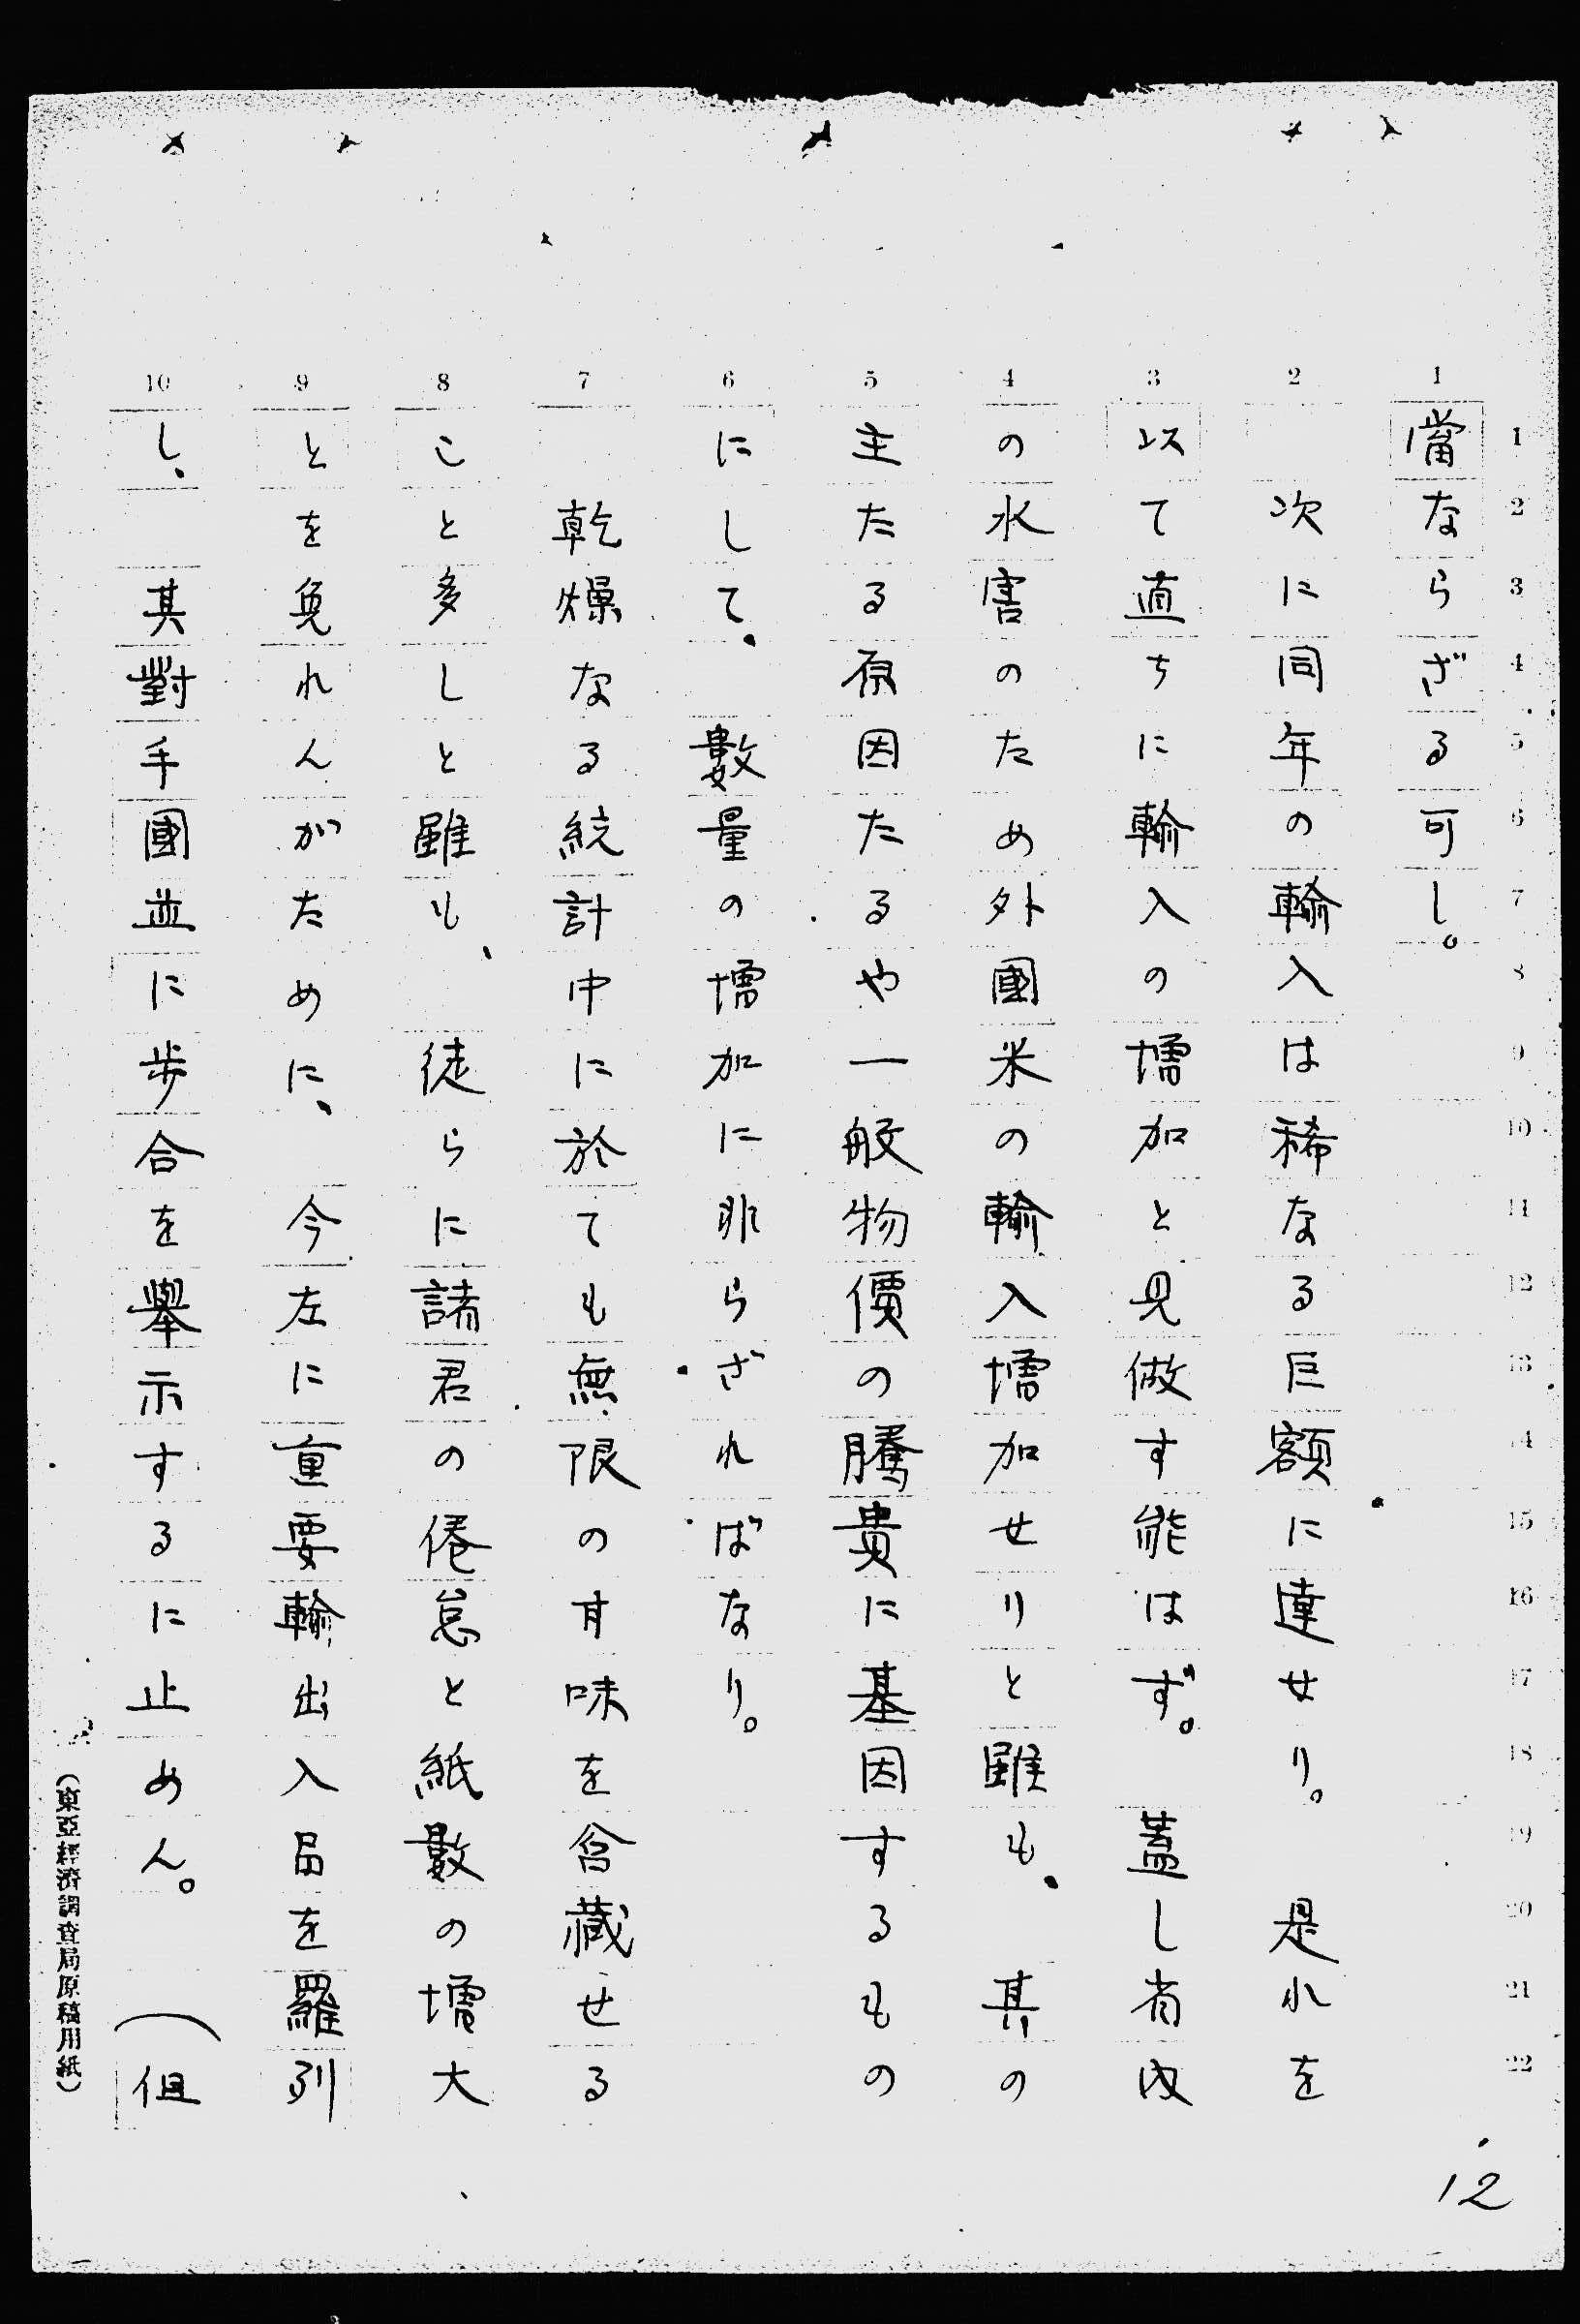 當ならざる可し。
次に同年の輸入は稀なる巨額に達せり。是れを
以て直ちに輸入の增加と見做す能はず。蓋し省内
の水害のため外國米の輸入增加せりと雖も、其の
主たる原因たるや一般物價の騰貴に基因するもの
にして、數量の增加に非らざればなり。
乾燥なる統計中に於ても無限の甘味を含藏せる
こと多しと雖も、徒らに諸君の倦怠と紙數の增大
とを免れんがために、今左に重要輸出入品を羅列
し、其對手國並に步合を擧示するに止めん。（但
（東亞經濟調查局原稿用紙）
12
1 2 3 4 5 6 7 8 9 10
1 2 3 4 5 6 7 8 9 10 11 12 13 14 15 16 17 18 19 20 21 22